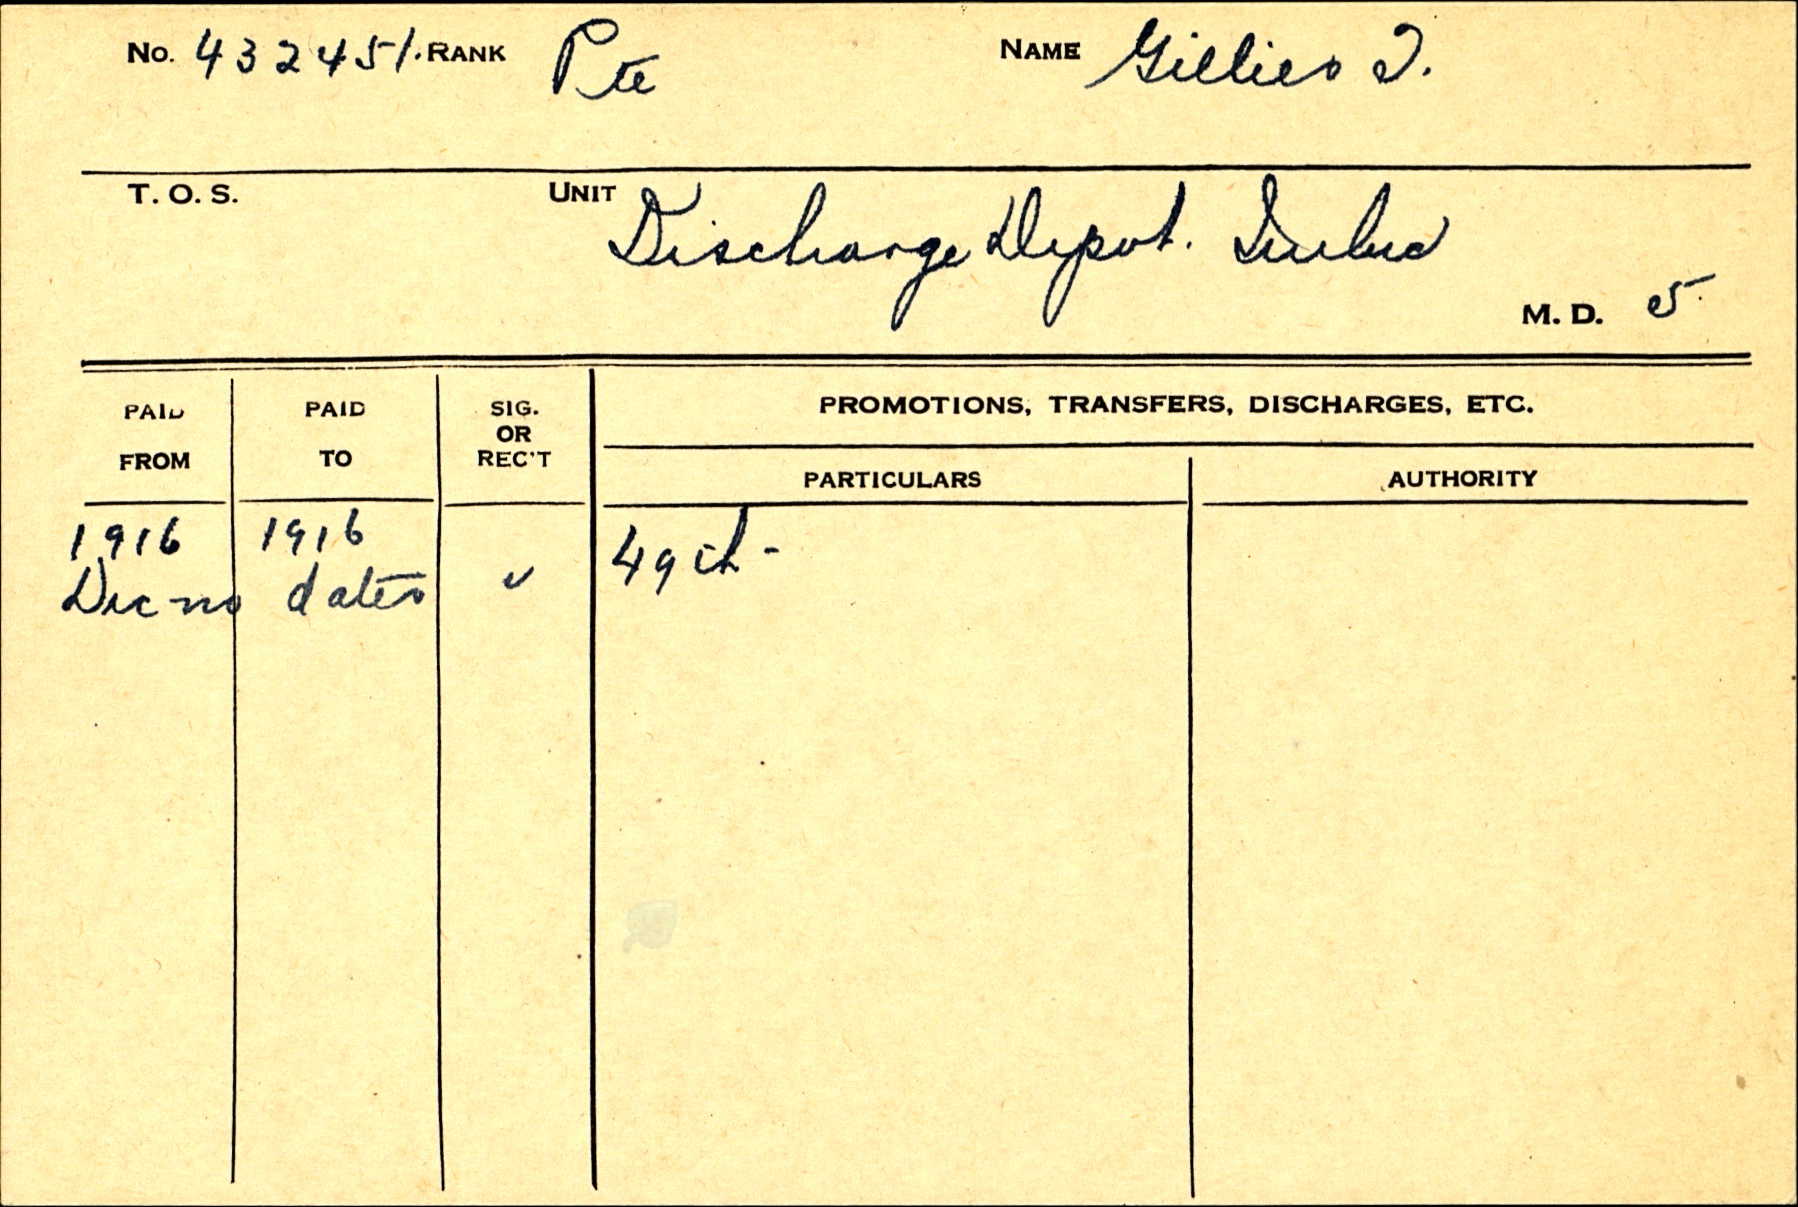 No. 432451. RANK Pte NAME Gillies J.
T. O. S. UNIT Discharge Depot. Quebec
M. D. 5
PAID FROM PAID TO SIG. OR REC'T PROMOTIONS, TRANSFERS, DISCHARGES, ETC.
PARTICULARS AUTHORITY
1916 1916 49th -
Dec no dates ✓